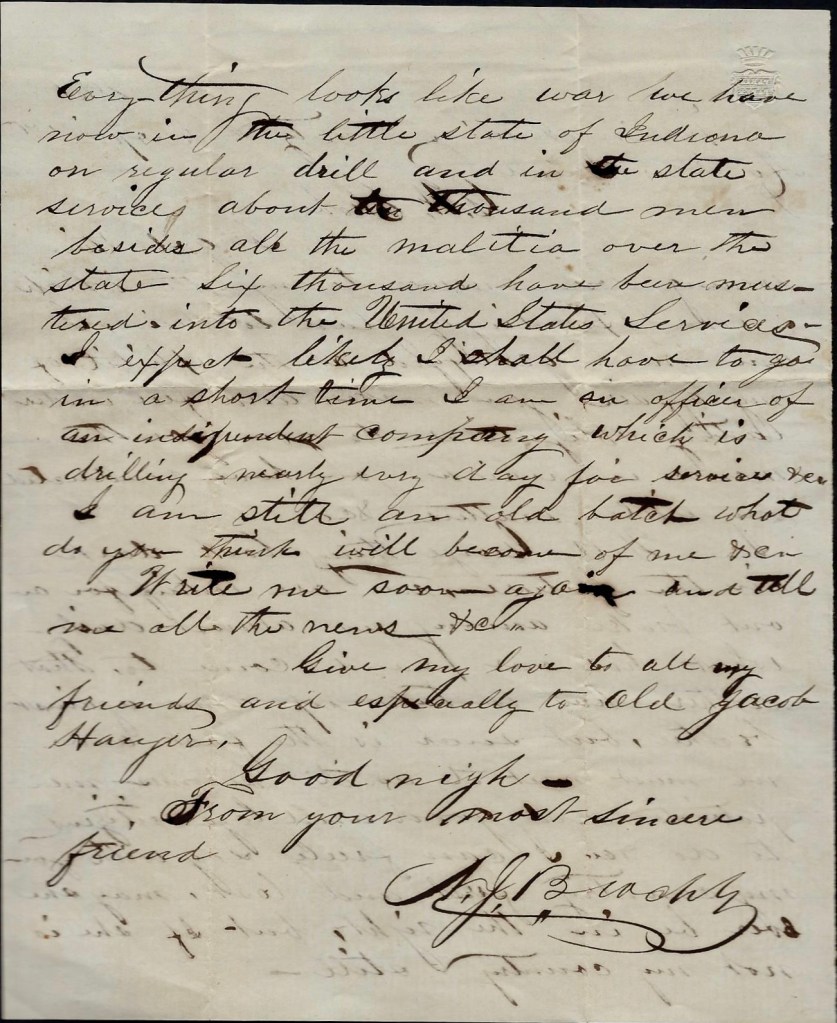 Every thing looks like war we have
now in the little state of Indiana
on regular drill and in the state
services about ten thousand men
besides all the malitia over the
state Six thousand have been mus-
tered into the United States Services-
I expect likely I shall have to go
in a short time I am an officer of
an independent company which is
drilling nearly every day for service &c
I am still an old batch what
do you think will become of me &c
Write me soon again and tell
me all the news &c
Give my love to all my
friends and especially to Old Jacob
Good nigh
From your most sincere
friend